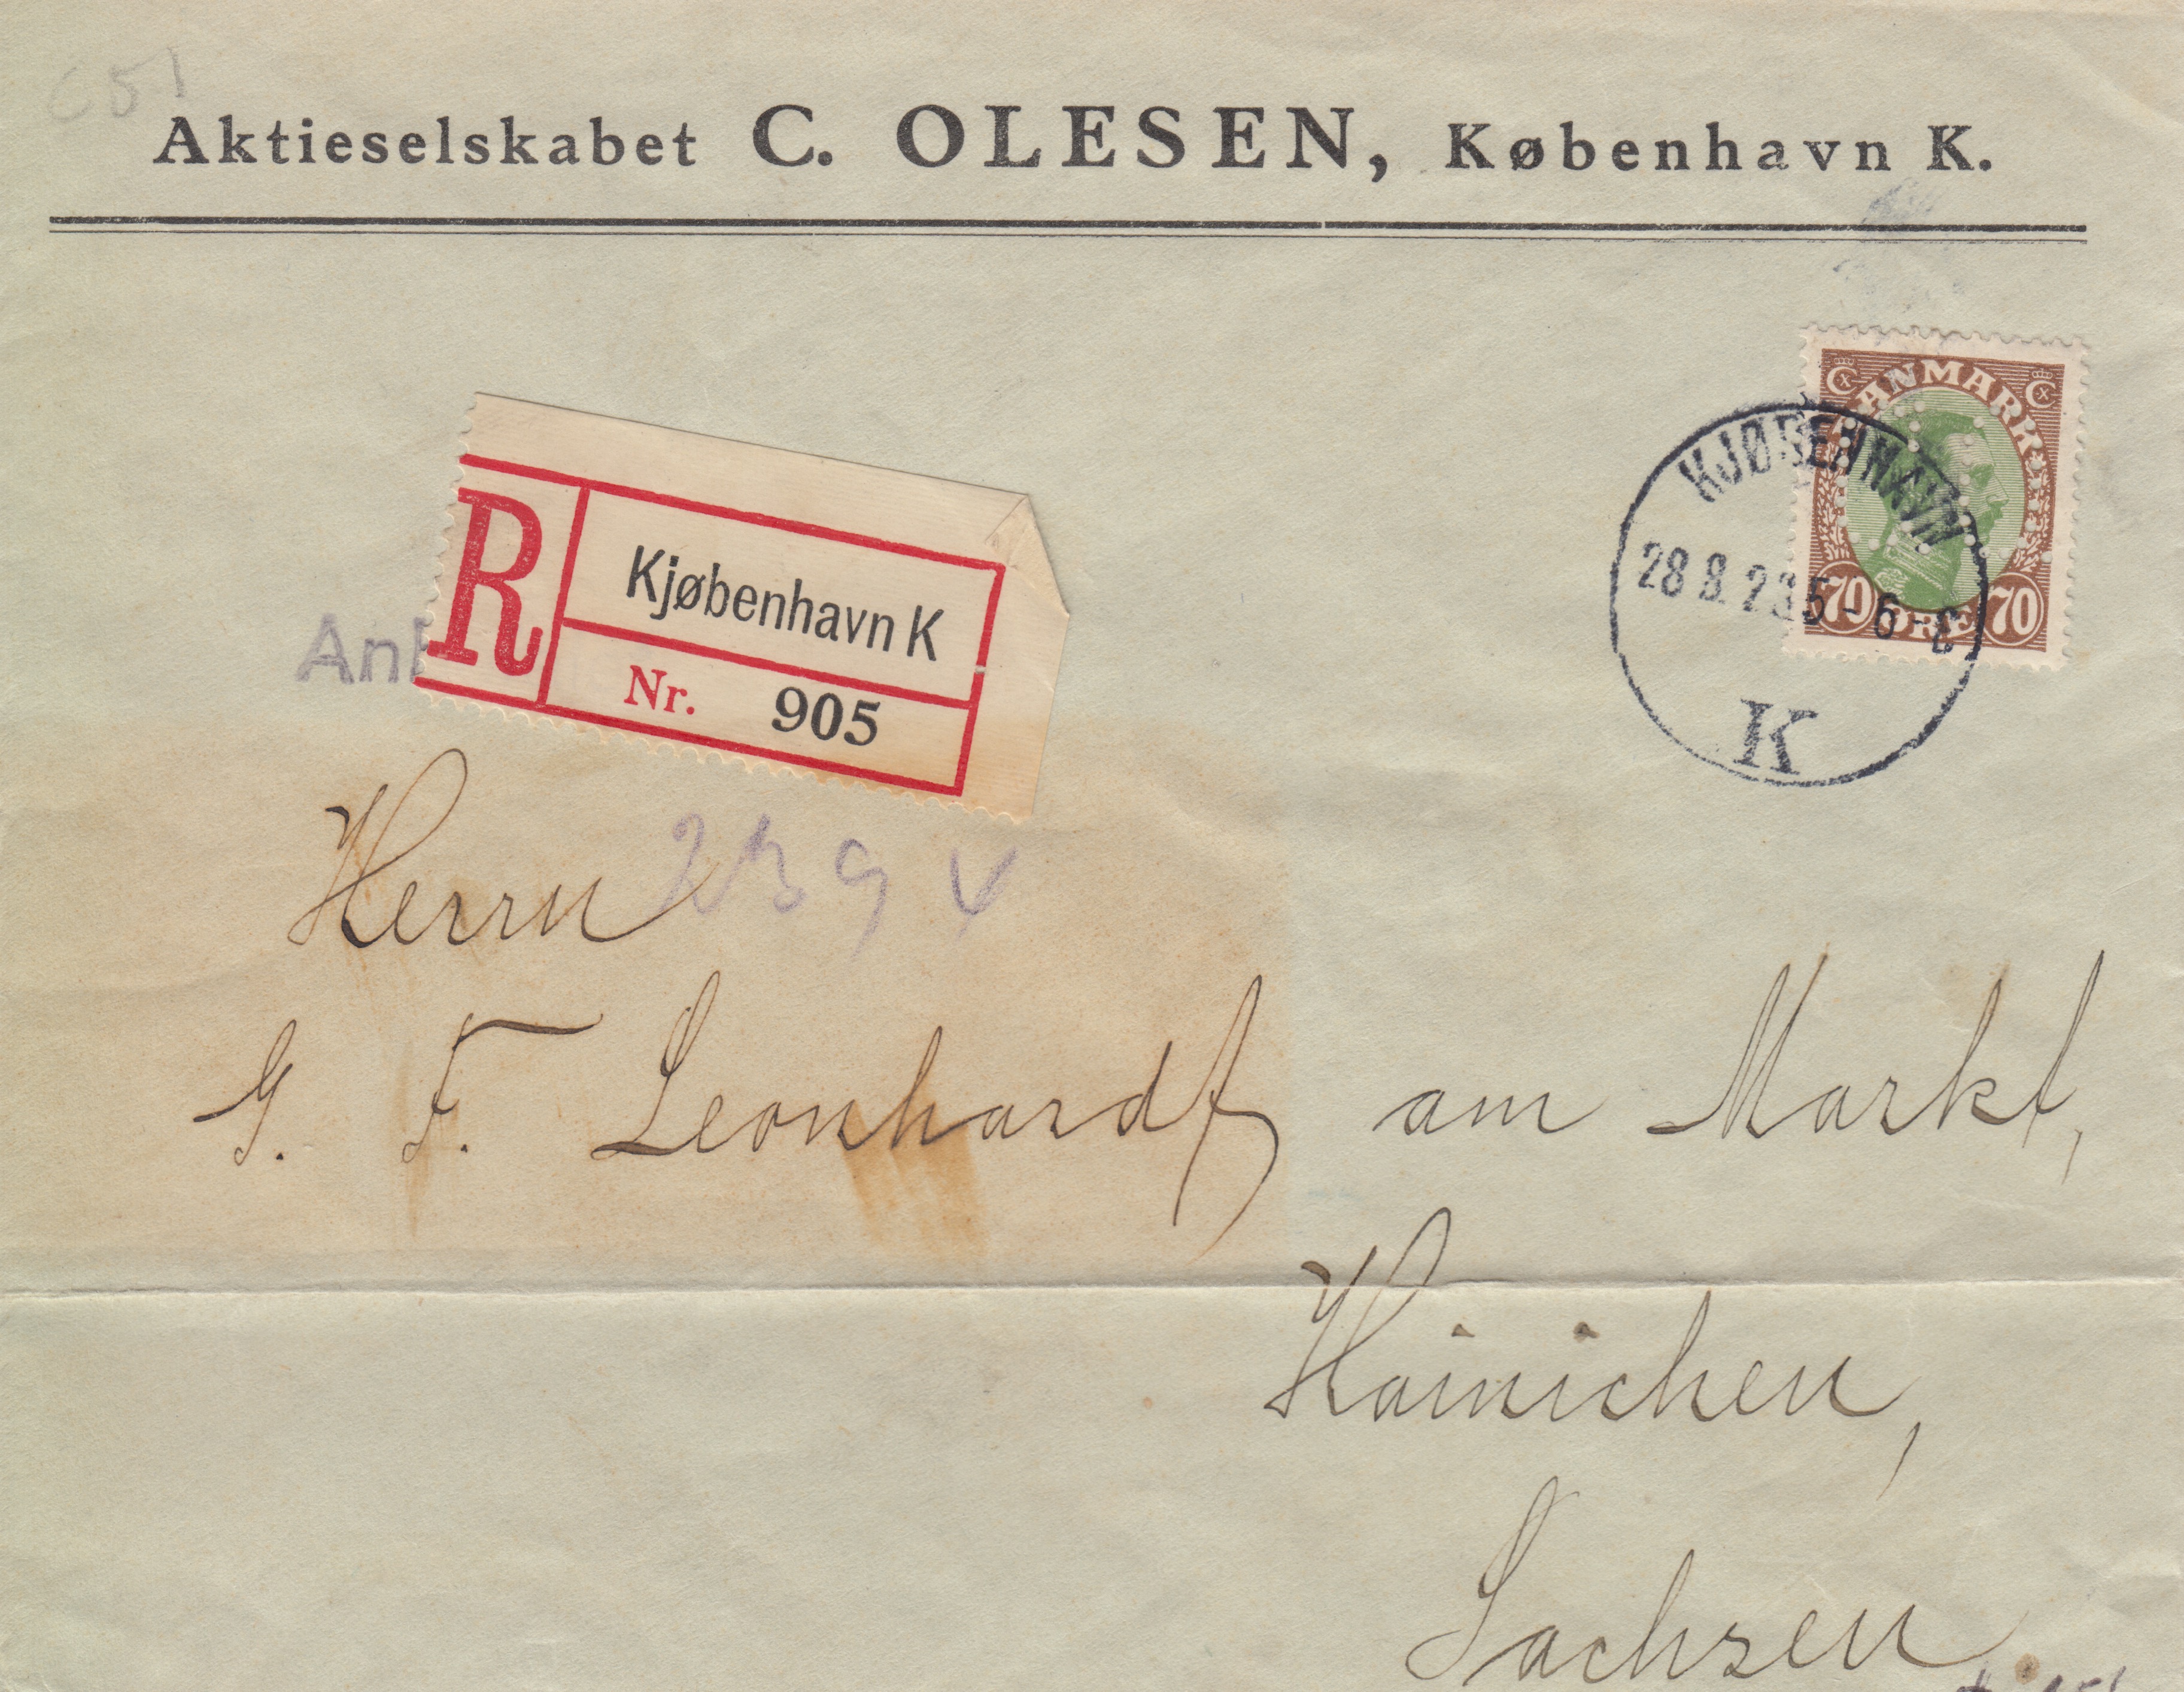 C51
Aktieselskabet C. OLESEN, København K.
DANMARK
70 ØRE 70
KJØBENHAVN
28.8.23 5-6 E
K
R
Kjøbenhavn K
Nr. 905
Herrn
G. F. Leonhardt am Markt,
Hainichen,
Sachsen